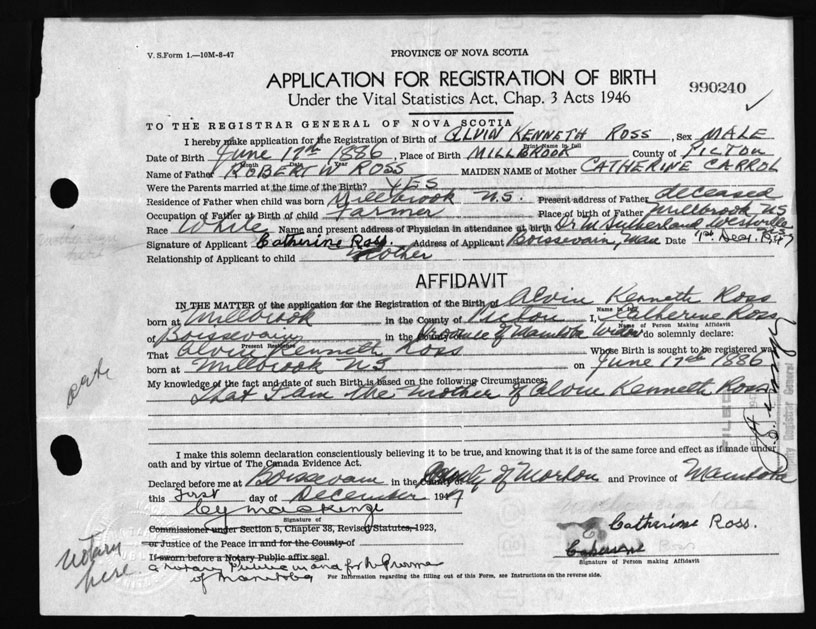 V. S. Form 1.—10M-8-47
PROVINCE OF NOVA SCOTIA
APPLICATION FOR REGISTRATION OF BIRTH
990240
Under the Vital Statistics Act, Chap. 3 Acts 1946
TO THE REGISTRAR GENERAL OF NOVA SCOTIA
I hereby make application for the Registration of Birth of ALVIN KENNETH ROSS, Sex MALE
Print Name in full
Date of Birth June 17th 1886, Place of Birth MILLBROOK County of PICTOU
Month Date Year
Name of Father ROBERT W ROSS MAIDEN NAME of Mother CATHERINE CARROL
Were the Parents married at the time of the Birth? YES
Residence of Father when child was born Millbrook N.S. Present address of Father deceased
Occupation of Father at Birth of child Farmer Place of birth of Father Millbrook NS
Race White Name and present address of Physician in attendance at birth Dr M Sutherland Westville N.S.
Signature of Applicant Catherine Ross. Address of Applicant Boissevain, Man Date 1st Dec. 1947
Relationship of Applicant to child Mother
AFFIDAVIT
IN THE MATTER of the application for the Registration of the Birth of Alvin Kenneth Ross
Name in full
born at Millbrook in the County of Pictou I, Catherine Ross
Name of Person Making Affidavit
of Boissevain in the county Province of Manitoba Widow do solemnly declare:
Present Residence
That Alvin Kenneth Ross Whose Birth is sought to be registered was
born at Millbrook NS on June 17th 1886
My knowledge of the fact and date of such Birth is based on the following Circumstances:
That I am the mother of Alvin Kenneth Ross
date
I make this solemn declaration conscientiously believing it to be true, and knowing that it is of the same force and effect as if made under
oath and by virtue of The Canada Evidence Act.
Declared before me at Boissevain in the County of Morton and Province of Manitoba
this First day of December 1947
Signature of
Commissioner under Section 5, Chapter 38, Revised Statutes, 1923,
or Justice of the Peace in and for the County of
If sworn before a Notary Public affix seal.
a Notary Public in and for the Province
of Manitoba
Catherine Ross.
Catherine
Signature of Person making Affidavit
notary
here
For Information regarding the filling out of this Form, see Instructions on the reverse side.
FILED
Registrar General